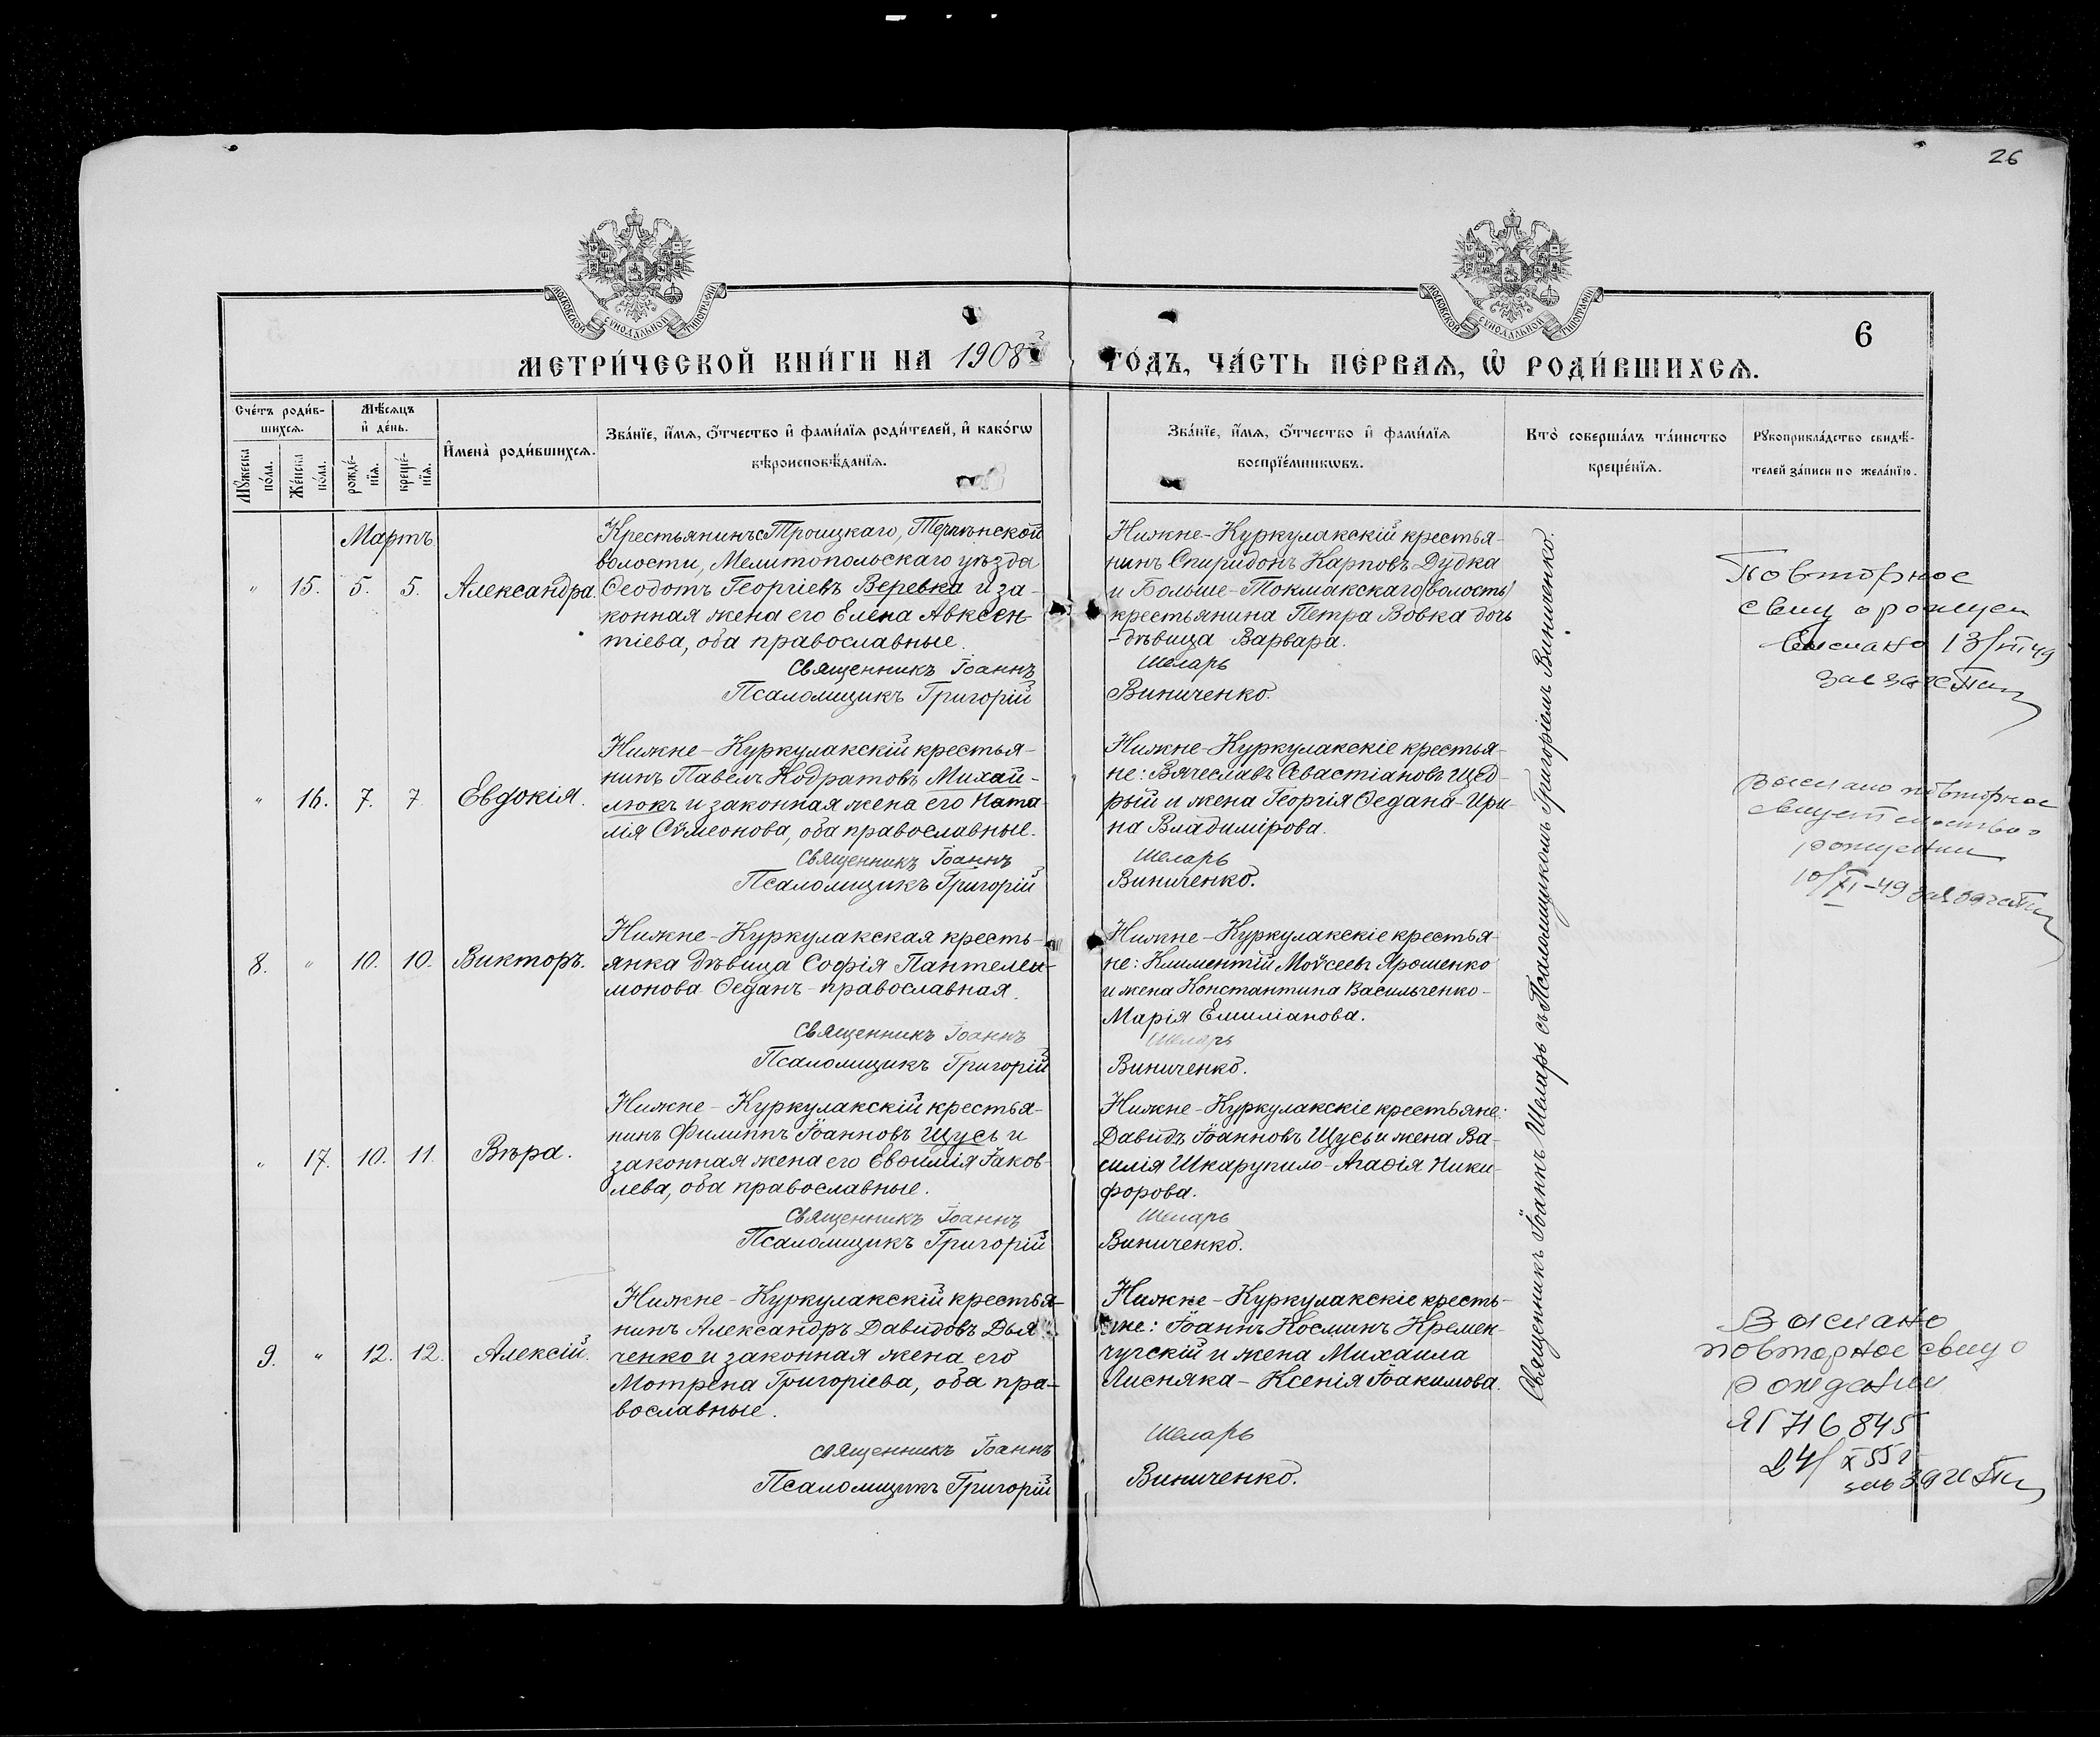 26
МОСКОВСКОЙ СУНОДАЛЬНОЙ ТИПОГРАФІИ
МОСКОВСКОЙ СУНОДАЛЬНОЙ ТИПОГРАФІИ
6
МЕТРИ́ЧЕСКОЙ КНИ́ГИ НА 1908й ГО́ДЪ, ЧА́СТЬ ПЕ́РВАѦ, Ѡ҆ РОДИ́ВШИХСѦ.
Сче́тъ роди́в-
шихсѧ.
Мꙋ́жеска
по́ла.
Же́нска
по́ла.
Мѣ́сѧцъ
и҆ де́нь.
рожде́-
нїѧ.
креще́-
нїѧ.
И҆мена̀ роди́вшихсѧ.
Зва́нїе, и҆́мѧ, ѻ҆́тчество и҆ фами́лїѧ роди́телей, и҆ како́гѡ
вѣроисповѣ́данїѧ.
Зва́нїе, и҆́мѧ, ѻ҆́тчество и҆ фами́лїѧ
воспрїе́мникѡвъ.
Кто̀ соверша́лъ та́инство
креще́нїѧ.
Рꙋкоприкла́дство свидѣ́-
телей за́писи по жела́нїю.
Мартъ
" 15. 5. 5. Александра
Крестьянинъ с Троицкаго, Терпѣнской
волости, Мелитопольскаго уѣзда
Ѳеодотъ Георгіевъ Веревка и за-
конная жена его Елена Авксен-
тіева, оба православные.
Священникъ Іоаннъ
Псаломщикъ Григорій
Нижне-Куркулакскій крестья-
нинъ Спиридонъ Карповъ Дудка
и Больше-Токмакскаго (волость)
крестьянина Петра Вовка дочь
-дѣвица Варвара.
Шеларь
Виниченко.
Повторное
свид о рожден
Выслано 13/III 49
зав
" 16. 7. 7 Евдокія.
Нижне-Куркулакскій крестья-
нинъ Павелъ Кодратовъ Михай-
люкъ и законная жена его Ната-
лія Сѵмеонова, оба православные.
Священникъ Іоаннъ
Псаломщикъ Григорій
Нижне-Куркулакскіе крестья-
не: Вячеславъ Севастіановъ Щед-
рый и жена Георгія Ѳедана-Ири-
на Владимірова.
Шеларь
Виниченко.
Выслано повторное
рождении
10/XI-49 зав
8. " 10. 10. Викторъ.
Нижне-Куркулакская кресть-
янка дѣвица Софія Пантелеи-
монова Ѳеданъ-православная.
Священникъ Іоаннъ
Псаломщикъ Григорій
Нижне-Куркулакскіе крестья-
не: Климентій Моѵсеевъ Ярошенко
и жена Константина Васильченко-
Марія Емиліанова.
Шеларь
Виниченко.
" 17. 10. 11. Вѣра.
Нижне-Куркулакскій крестья-
нинъ Филиппъ Іоанновъ Щусь и
законная жена его Евфимія Іаков-
лева, оба православные.
Священникъ Іоаннъ
Псаломщикъ Григорій
Нижне-Куркулакскіе крестьяне:
Давидъ Іоанновъ Щусь и жена Ва-
силія Шкарупило-Агафія Ники-
форова.
Шеларь
Виниченко.
9. " 12. 12. Алексій.
Нижне-Куркулакскій крестья-
нинъ Александръ Давидовъ Дья-
ченко и законная жена его
Мотрена Григоріева, оба пра-
вославные.
Священникъ Іоаннъ
Псаломщикъ Григорій
Нижне-Куркулакскіе кресть-
яне: Іоаннъ Косминъ Кремен-
чугскій и жена Михаила
Лисняка-Ксенія Іоакимова.
Шеларь
Виниченко.
Выслано
повторное свид о
рождении
ЯГ 716845
24/X 55 г
зав
Священникъ Іоаннъ Шеларь съ Псаломщикомъ Григоріемъ Виниченко.